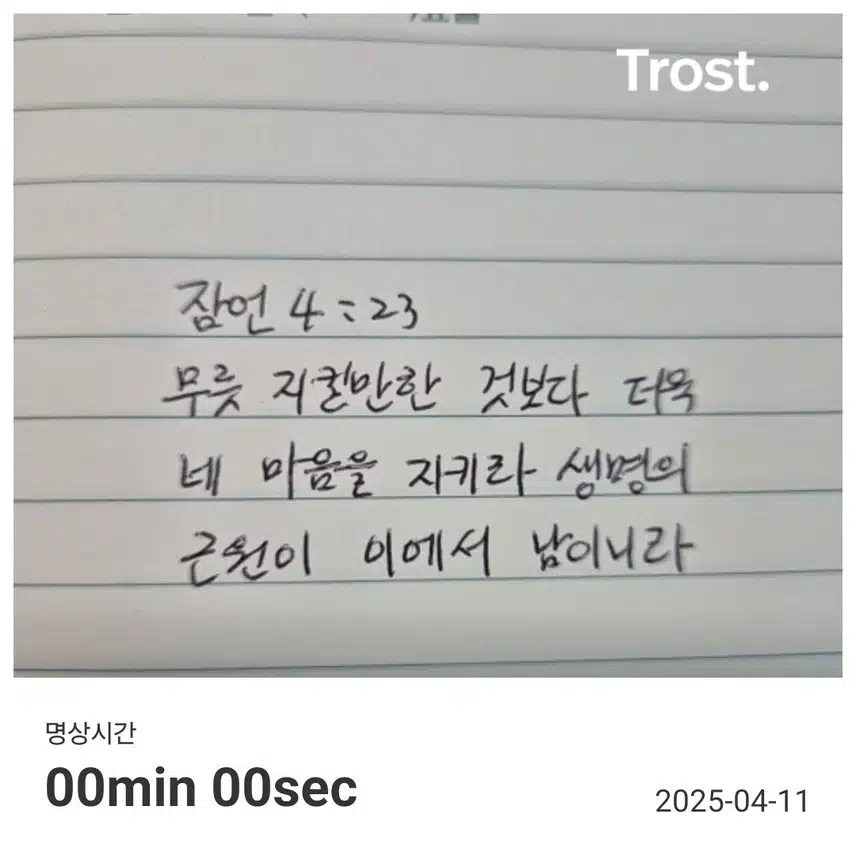 Trost.
잠언 4:23
무릇 지킬만한 것보다 더욱
네 마음을 지키라 생명의
근원이 이에서 남이니라
명상시간
00min 00sec
2025-04-11